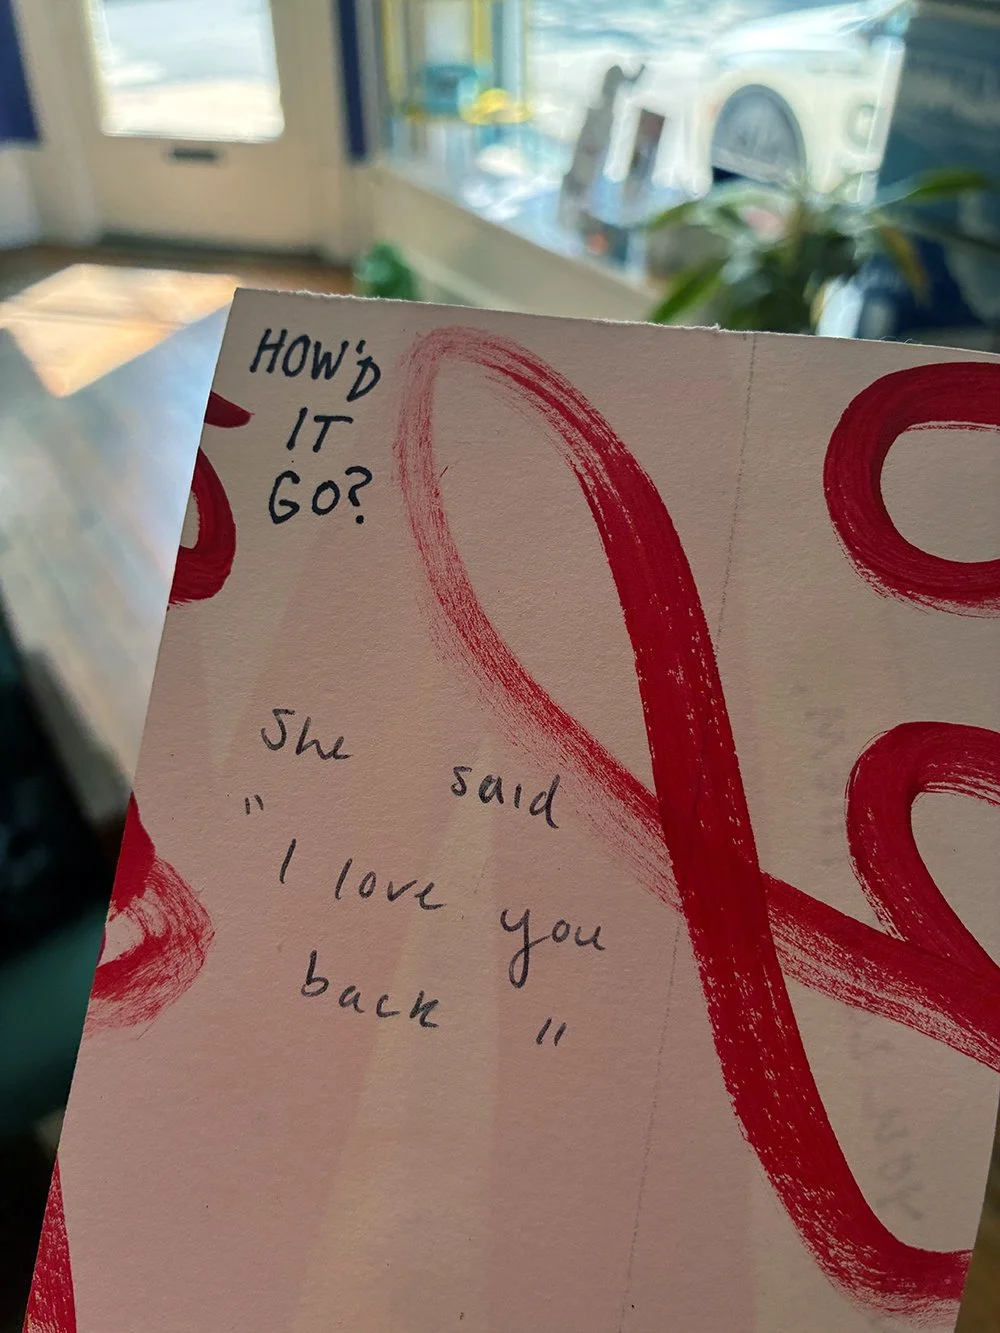 HOW'D
IT
GO?
She said
"I love you
back "